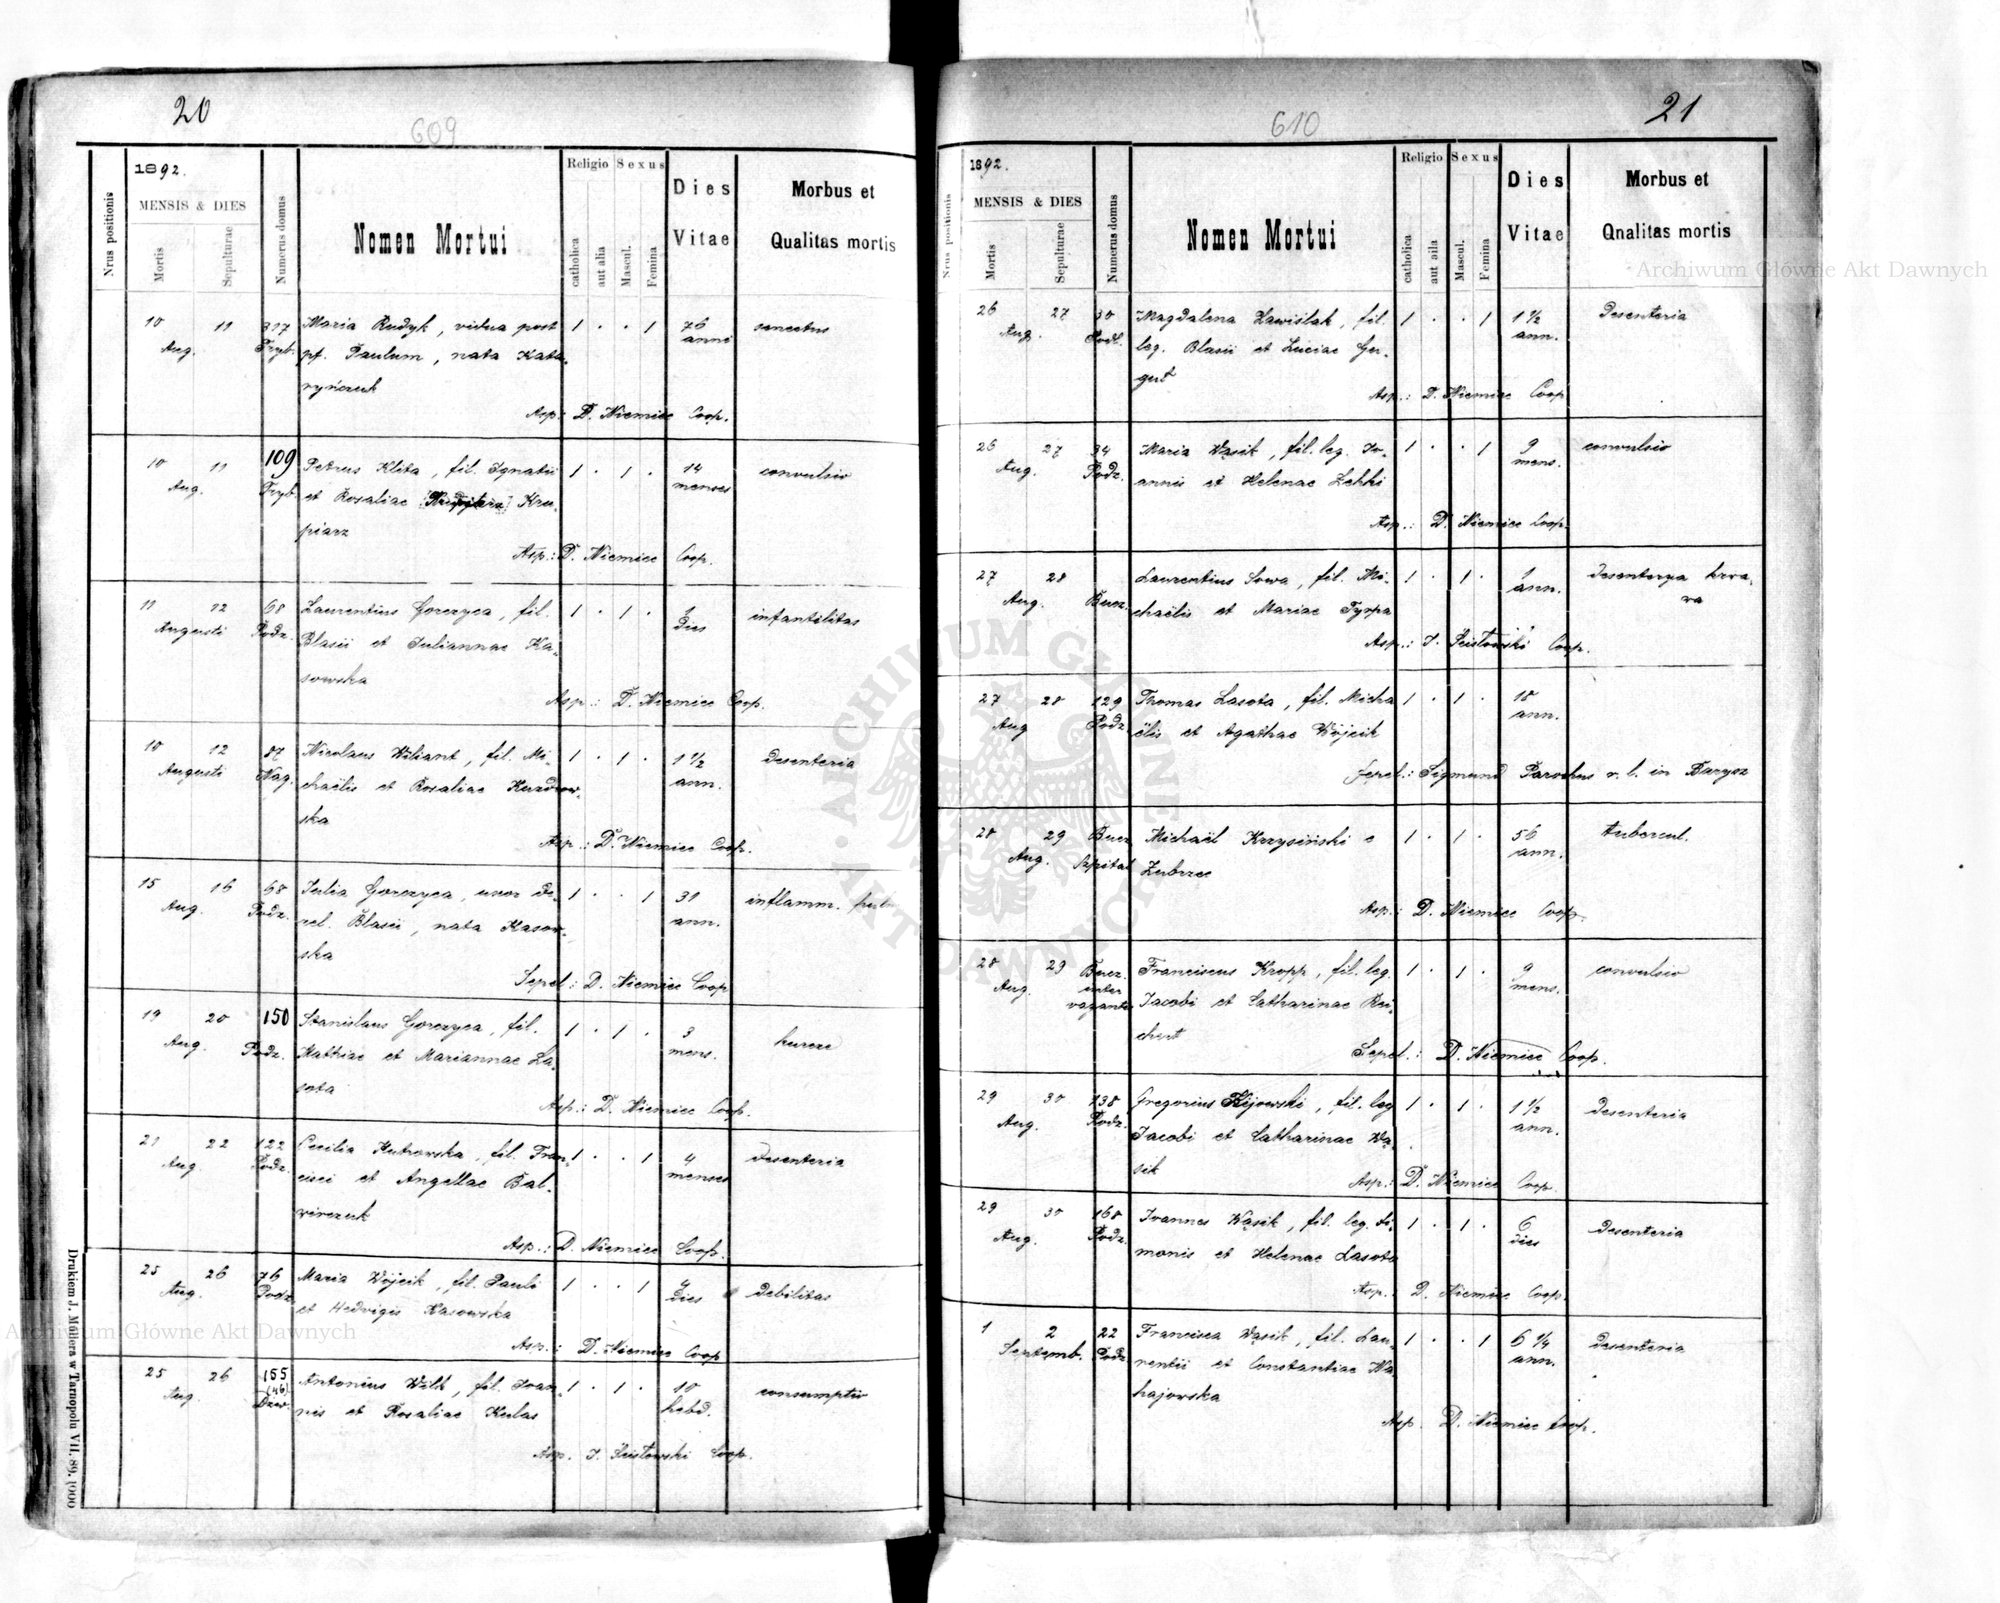 20
609
1892.
Nrus positionis
MENSIS & DIES
Mortis
Sepulturae
Numerus domus
Nomen Mortui
Religio
Sexus
catholica
aut alia
Mascul.
Femina
Dies
Vitae
Morbus et
Qualitas mortis
10 11 317 Maria Rudyk, vidua post 1 . . 1 76 senectus
Aug. Tryb. pf. Paulum, nata Kata- anni
ryńczuk
Asp.: D. Niemiec Coop.
10 11 109 Petrus Klita, fil. Ignatii 1 . 1 . 14 convulsio
Aug. Tryb. et Rosaliae Kru- menses
piarz
Asp.: D. Niemiec Coop.
11 12 68 Laurentius Gorczyca, fil. 1 . 1 . 1 infantilitas
Augusti Podz. Blasii et Juliannae Ka- dies
sowska
Asp.: D. Niemiec Coop.
10 12 87 Nicolaus Wiliant, fil. Mi- 1 . 1 . 1 1/2 desenteria
Augusti Nag. chaëlis et Rosaliae ann.
ska
Asp.: D. Niemiec Coop.
15 16 68 Julia Gorczyca, uxor de- 1 . . 1 31 inflamm.
Aug. Podz. rel. Blasii, nata Kasow- ann.
ska
Sepel: D. Niemiec Coop
19 20 150 Stanislaus Gorczyca, fil. 1 . 1 . 3 kurcze
Aug. Podz. Mathiae et Mariannae La- mens.
sota
Asp.: D. Niemiec Coop.
21 22 122 Cecilia Kutrowska, fil. Fran- 1 . . 1 4 desenteria
Aug. Podz. cisci et Angellae Bal- menses
Asp.: D. Niemiec Coop.
25 26 76 Maria Wójcik, fil. Pauli 1 . . 1 4 debilitas
Aug. Podz. et Hedvigis Kasowska dies
Asp.: D. Niemiec Coop
25 26 155 Antonius Wilk, fil. Joan- 1 . 1 . 10 consumptio
Aug. (46) nis et Rosaliae Kulas hebd.
Dzw.
Asp. J. Coop.
Drukiem J. Mollera w Tarnopolu VII. 89. 1000
21
610
1892.
Nrus positionis
MENSIS & DIES
Mortis
Sepulturae
Numerus domus
Nomen Mortui
Religio
Sexus
catholica
aut aila
Mascul.
Femina
Dies
Vitae
Morbus et
Qnalitas mortis
26 27 30 Magdalena Zawiślak, fil. 1 . . 1 1 1/2 Desenteria
Aug. leg. Blasii et Luciae Ger- ann.
gert
Asp.: D. Niemiec Coop
26 27 34 Maria Wąsik, fil. leg. Jo- 1 . . 1 9 convulsio
Aug. Podz. annis et Helenae Lehki mens.
Asp.: D. Niemiec Coop.
27 28 Laurentius Sowa, fil. Mi- 1 . 1 . 1 desenterya krwa-
Aug. Bucz. chaëlis et Mariae Tyrpa ann. wa
Asp.: J. Coop.
27 28 129 Thomas Lasota, fil. Micha 1 . 1 . 18
Aug Podz. ëlis et Agathae Wójcik ann.
Sepel.: Sigmund Parochus r. l. in Barysz
28 29 Bucz Michaël Krzysiński e 1 . 1 . 56 tubercul.
Aug. Szpital Zubrzec ann.
Asp.: D. Niemiec Coop.
28 29 Bucz. Franciscus Kropp, fil. leg. 1 . 1 . 9 convulsio
Aug. inter Jacobi et Catharinae Rei- mens.
chert
Sepel.: D. Niemiec Coop.
29 30 138 Gregorius Kijowski, fil. leg 1 . 1 . 1 1/2 desenteria
Aug. Podz. Jacobi et Catharinae Wą- ann.
sik
Asp.: D. Niemiec Coop.
29 30 168 Joannes Wąsik, fil. leg. Si- 1 . 1 . 6 desenteria
Aug. Podz. monis et Helenae Lasota dies
Asp. D. Niemiec Coop.
1 2 22 Francisca Wąsik, fil. Lau- 1 . . 1 6 1/4 desenteria
Septemb. Podz rentii et Constantiae Wa ann.
hajowska
Asp. D. Niemiec Coop.
Archiwum Główne Akt Dawnych
Archiwum Główne Akt Dawnych
ARCHIWUM GŁÓWNE AKT DAWNYCH